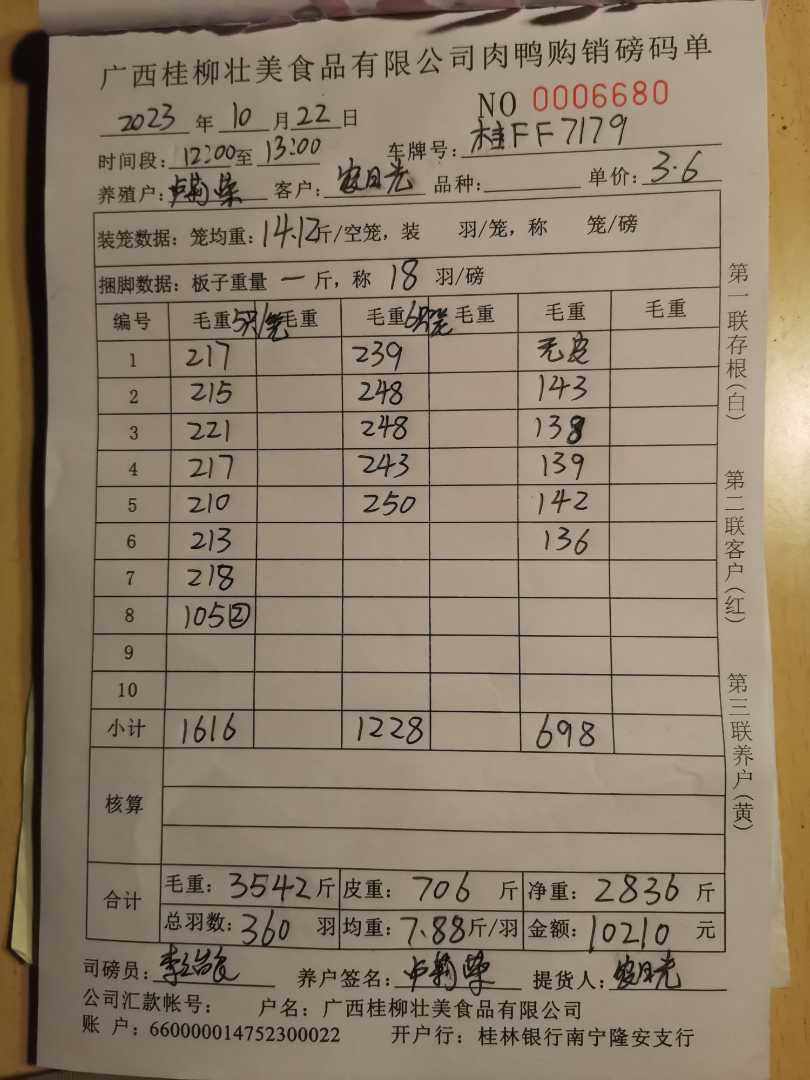 广西桂柳壮美食品有限公司肉鸭购销磅码单
2023 年 10 月 22 日 NO 0006680
时间段: 12:00 至 13:00 车牌号: 桂FF7179
养殖户: 客户: 品种: 单价: 3.6
装笼数据: 笼均重: 14.12 斤/空笼, 装 羽/笼, 称 笼/磅
捆脚数据: 板子重量 一 斤, 称 18 羽/磅
编号 毛重 5只/笼 毛重 毛重 6只/笼 毛重 毛重 毛重
1 217 239 无皮
2 215 248 143
3 221 248 138
4 217 243 139
5 210 250 142
6 213 136
7 218
8 105②
9
10
小计 1616 1228 698
核算
合计 毛重: 3542 斤 皮重: 706 斤 净重: 2836 斤
总羽数: 360 羽 均重: 7.88 斤/羽 金额: 10210 元
司磅员: 养户签名: 提货人:
公司汇款帐号: 户名: 广西桂柳壮美食品有限公司
账 户: 660000014752300022 开户行: 桂林银行南宁隆安支行
第一联存根(白) 第二联客户(红) 第三联养户(黄)